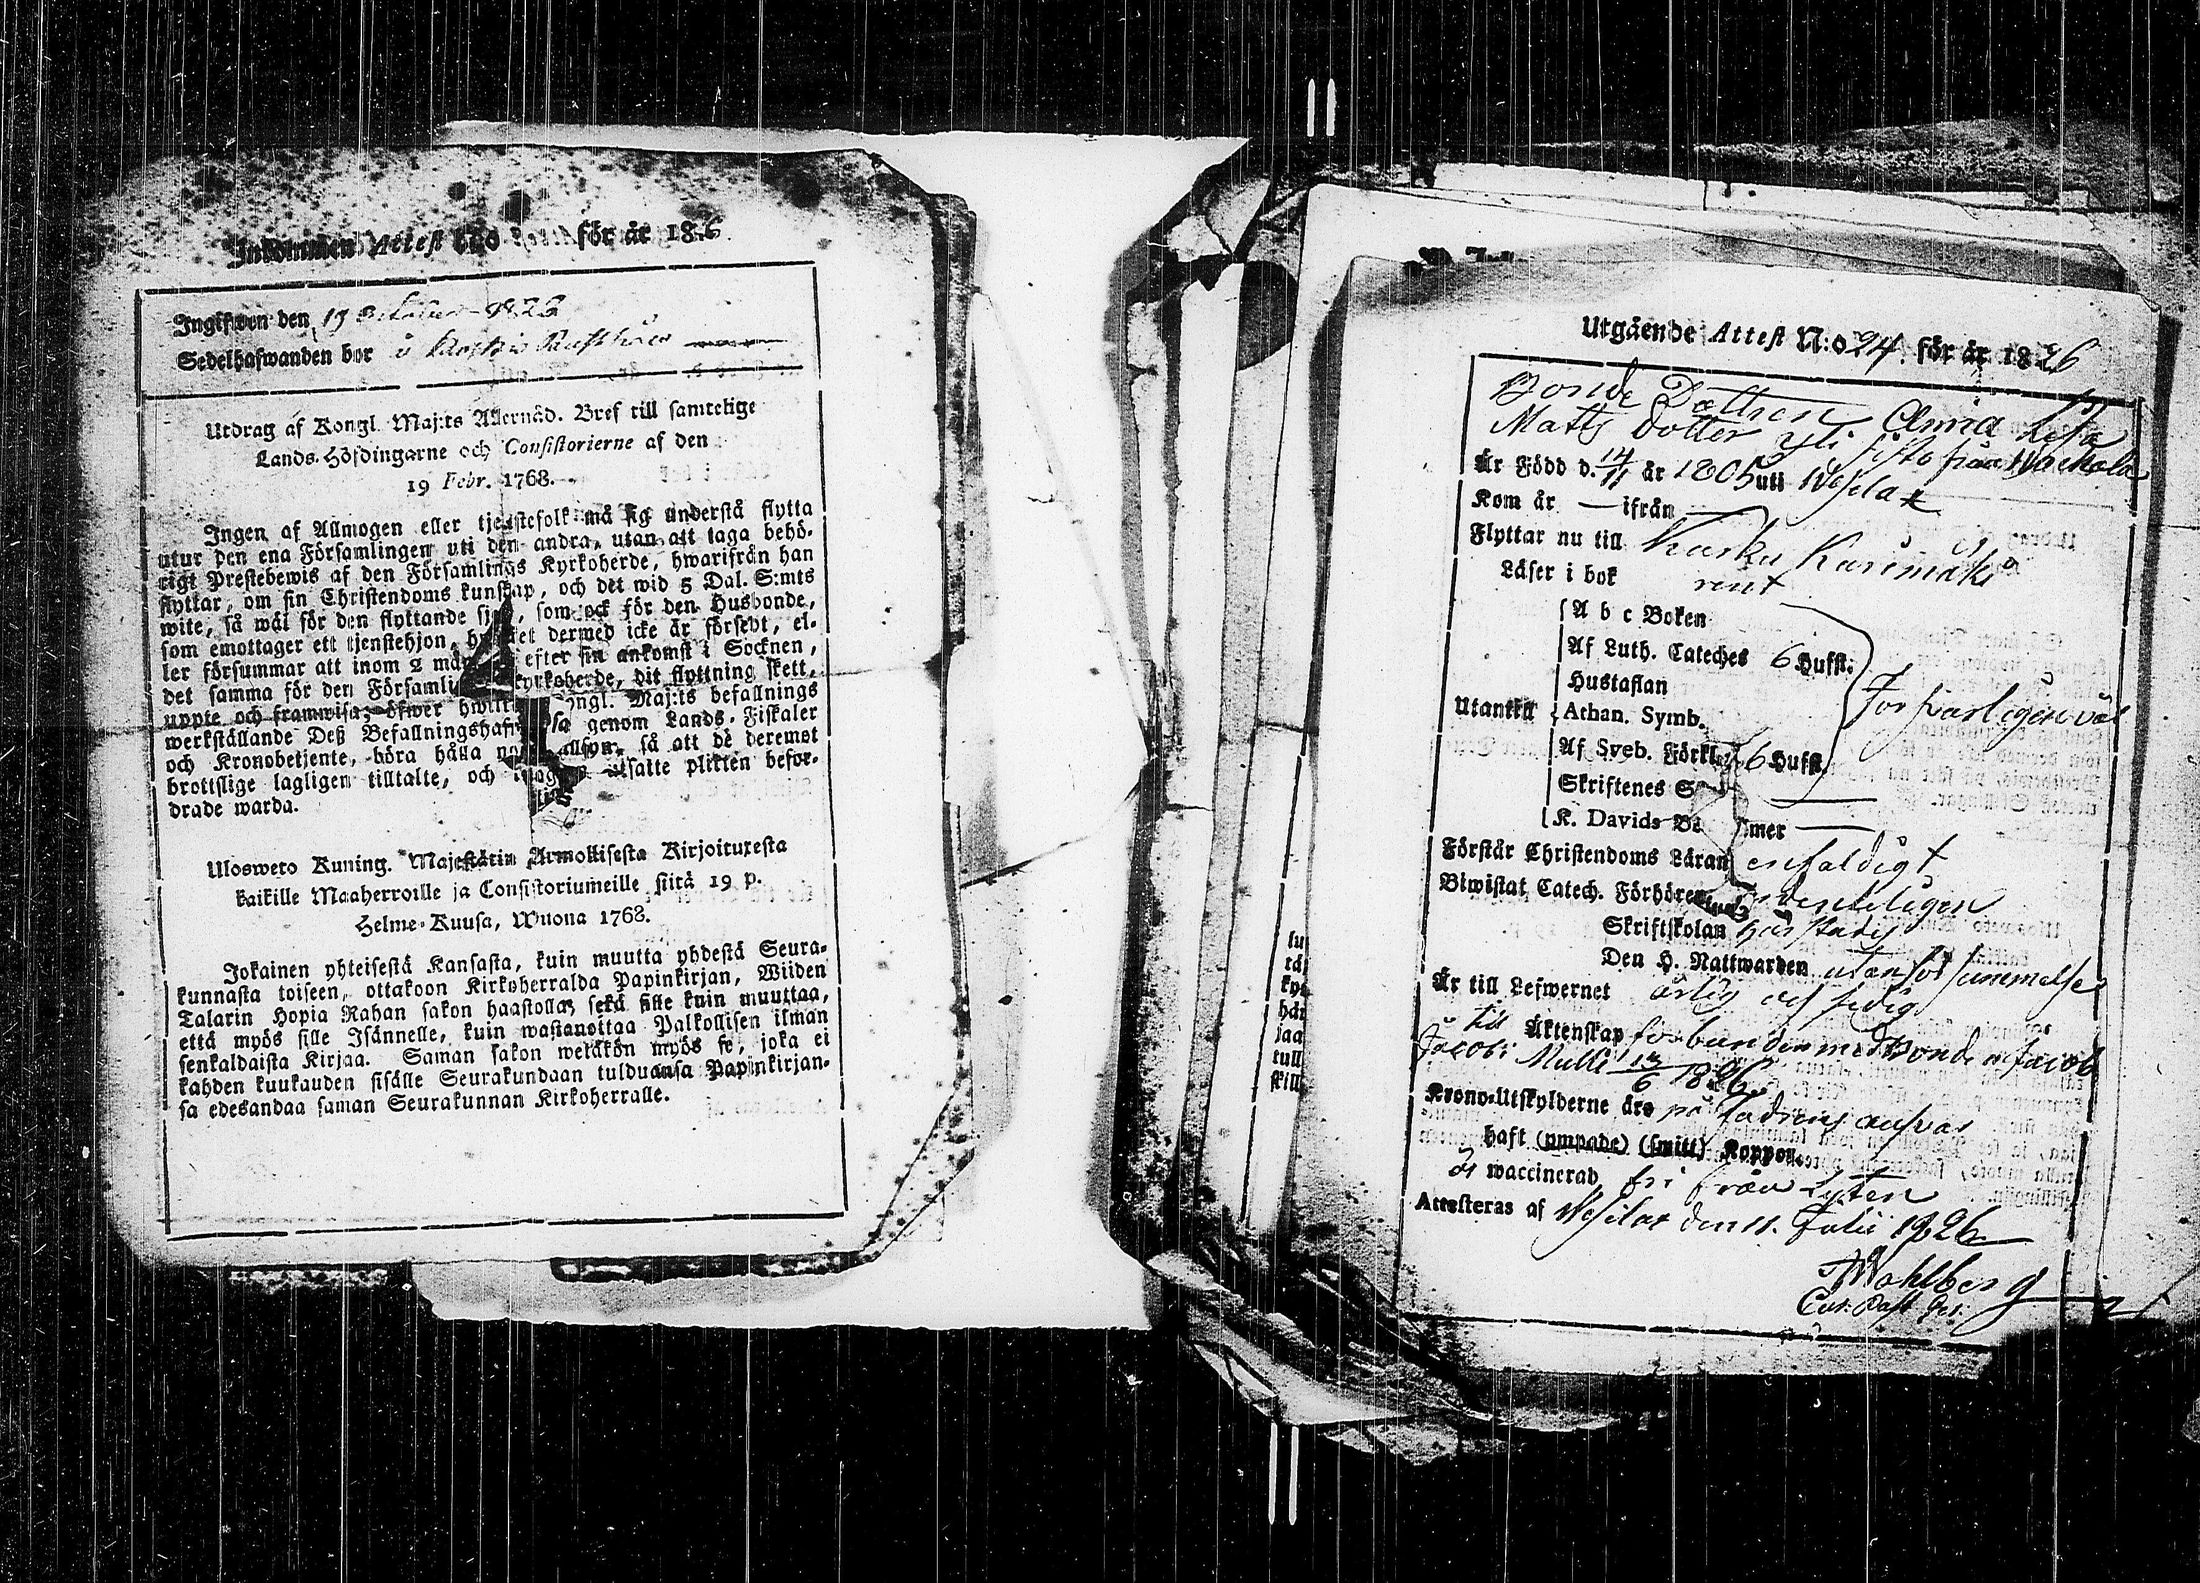 Inkommen Attest N:o för år 18 6
Ingifwen den 19 October 1823
Sedelhafwanden bor i
Utdrag af Kongl. Maj:ts Allernåd. Bref till samtelige
Lands-Höfdingarne och Consistorierne af den
19 Febr. 1768.
Ingen af Allmogen eller tjenstefolk må sig understå flytta
utur den ena Församlingen uti den andra, utan att taga behö-
rigt Prestebewis af den Församlings Kyrkoherde, hwarifrån han
flyttar, om sin Christendoms kunskap, och det wid 5 Dal. S:mts
wite, så wäl för den flyttande sj , som ock för den Husbonde,
som emottager ett tjenstehjon, hw ket dermed icke är försedt, el-
ler försummar att inom 2 mån efter sin ankomst i Socknen,
det samma för den Församli Kyrkoherde, dit flyttning skett,
uppte och framwisa; öfwer hwilk ongl. Maj:ts befallnings
werkställande Deß Befallningshafw sa genom Lands-Fiskaler
och Kronobetjente, böra hålla no allsyn, så att de deremot
brottslige lagligen tilltalte, och utsatte plikten befor-
drade warda.
Ulosweto Kuning. Majestätin Armollisesta Kirjoituxesta
kaikille Maaherroille ja Consistoriumeille siitä 19 p.
Helme-Kuusa, Wuona 1768.
Jokainen yhteisestä Kansasta, kuin muutta yhdestä Seura-
kunnasta toiseen, ottakoon Kirkoherralda Papinkirjan, Wiiden
Talarin Hopia Rahan sakon haastolla, sekä sille kuin muuttaa,
että myös sille Isännelle, kuin wastanottaa Palkollisen ilman
senkaldaista Kirjaa. Saman sakon wetäkön myös se, joka ei
kahden kuukauden sisälle Seurakundaan tulduansa Papinkirjan-
sa edesandaa saman Seurakunnan Kirkoherralle.
Utgående Attest N:o 24. för år 1826
Bonde Dottren Anna Lisa
Matts Dotter Yli Sisto från Narkola
Är Född d. 14/11 år 1805 uti Wesilax
Kom år — ifrån —
Flyttar nu till Karku Karimäki
Läser i bok rent
A b c Boken
Af Luth. Cateches 6 Hufst.
Hustaflan
Utantill Athan. Symb. Försvarligen väl
Af Sveb. Förkl. 6 Hufst.
Skriftenes S —
K. Davids Bo mer —
Förstår Christendoms Läran enfaldigt
Biwistat Catech. Förhören ordenteligen
Skriftskolan
Den H. Nattwarden utan försummelse
Är till Lefwernet ärlig och sedig
till Äktenskap förbunden med Bonden Jacob
Jacobi Mulli 12/6 1826.
Krono-Utskylderne äro på fadrens ansvar
haft (ympade) (smitt) Koppor
är waccinerad fri från Lyten
Attesteras af Wesilax den 11. Julii 1826
Wahlberg